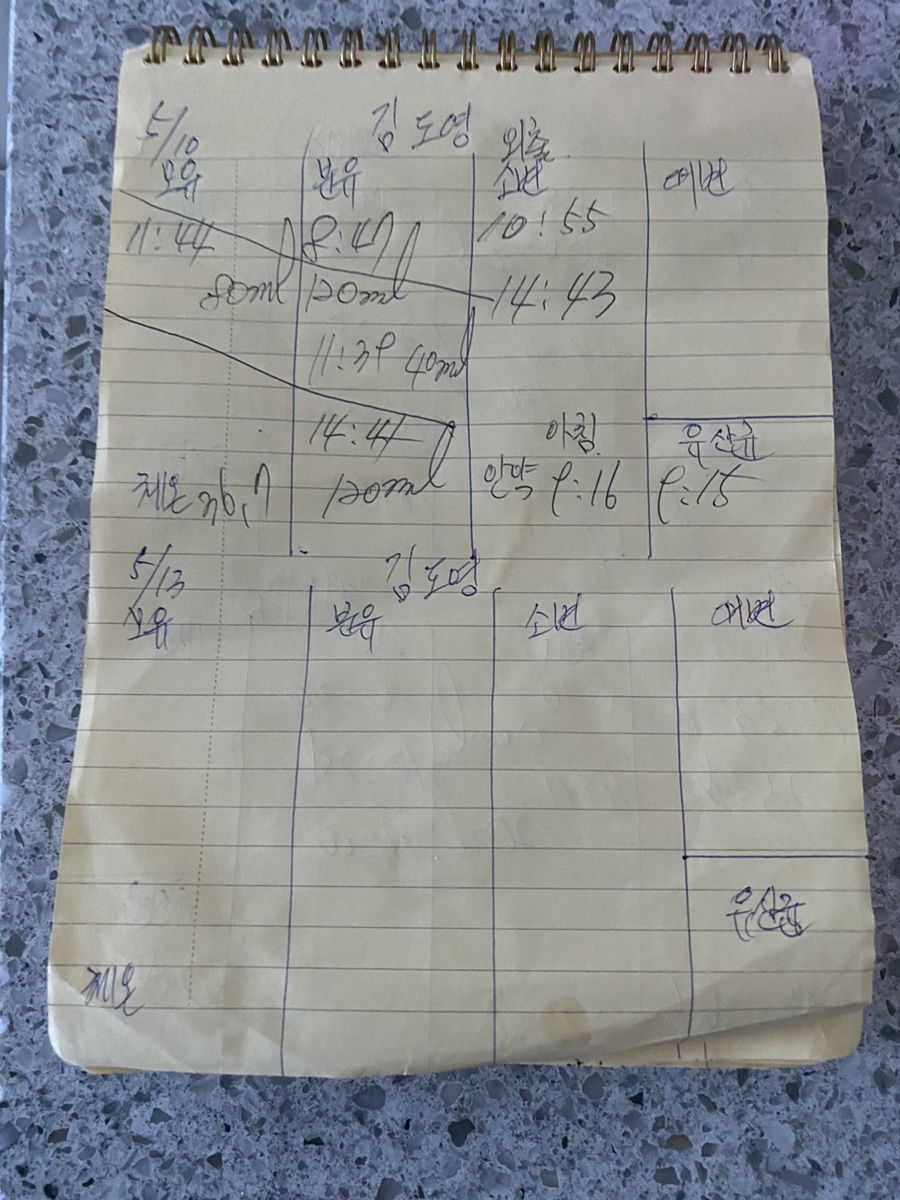 5/10 김도영
외출
모유 분유 소변 대변
11:44 8:47 10:55
80ml 120ml 14:43
11:39 40ml
14:41 아침 유산균
체온 120ml 안약 9:16 9:15
5/13 김도영
모유 분유 소변 대변
유산균
체온